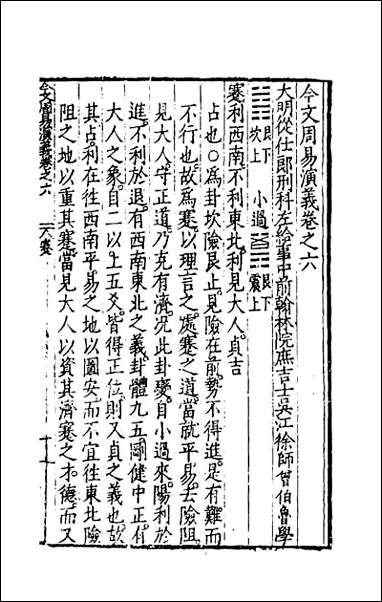 今文周易演義卷之六
大明從仕郎刑科左給事中前翰林院庶吉士吳江徐師曾伯魯學
艮下坎上 小過 艮下震上
蹇利西南不利東北利見大人貞吉
占也○爲卦坎險艮止見險在前勢不得進是有難而
不行也故爲蹇以理言之處蹇之道當就平易去險阻
見大人守正道乃克有濟况此卦變自小過來陽利於
進不利於退有西南東北之義卦體九五剛健中正有
大人之象自二以上五爻皆得正位則又貞之義也故
其占利在徃西南平易之地以圖安而不宜徃東北險
阻之地以重其蹇當見大人以資其濟蹇之才德而又
今文周易演義卷之六
蹇